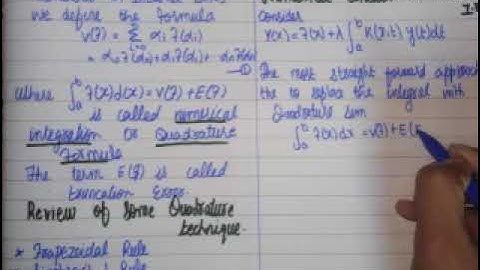 we define the formula
v(f) = Σ αi f(αi)
= α1 f(α1) + α2 f(α2) + αn f(αn)
①
where ∫ₐᵇ f(x)d(x) = v(f) + E(f)
is called numerical
integration or Quadrature
Formula
The term E(f) is called
truncation Error.
Review of Some Quadrature
technique.
* Trapezoidal Rule
Consider
Y(x) = f(x) + λ ∫ₐᵇ K(x,t) y(t)dt
The most straight forward approach
the to replace the integral with
Quadrature Sum
∫ₐᵇ f(x)dx = v(f) + E(